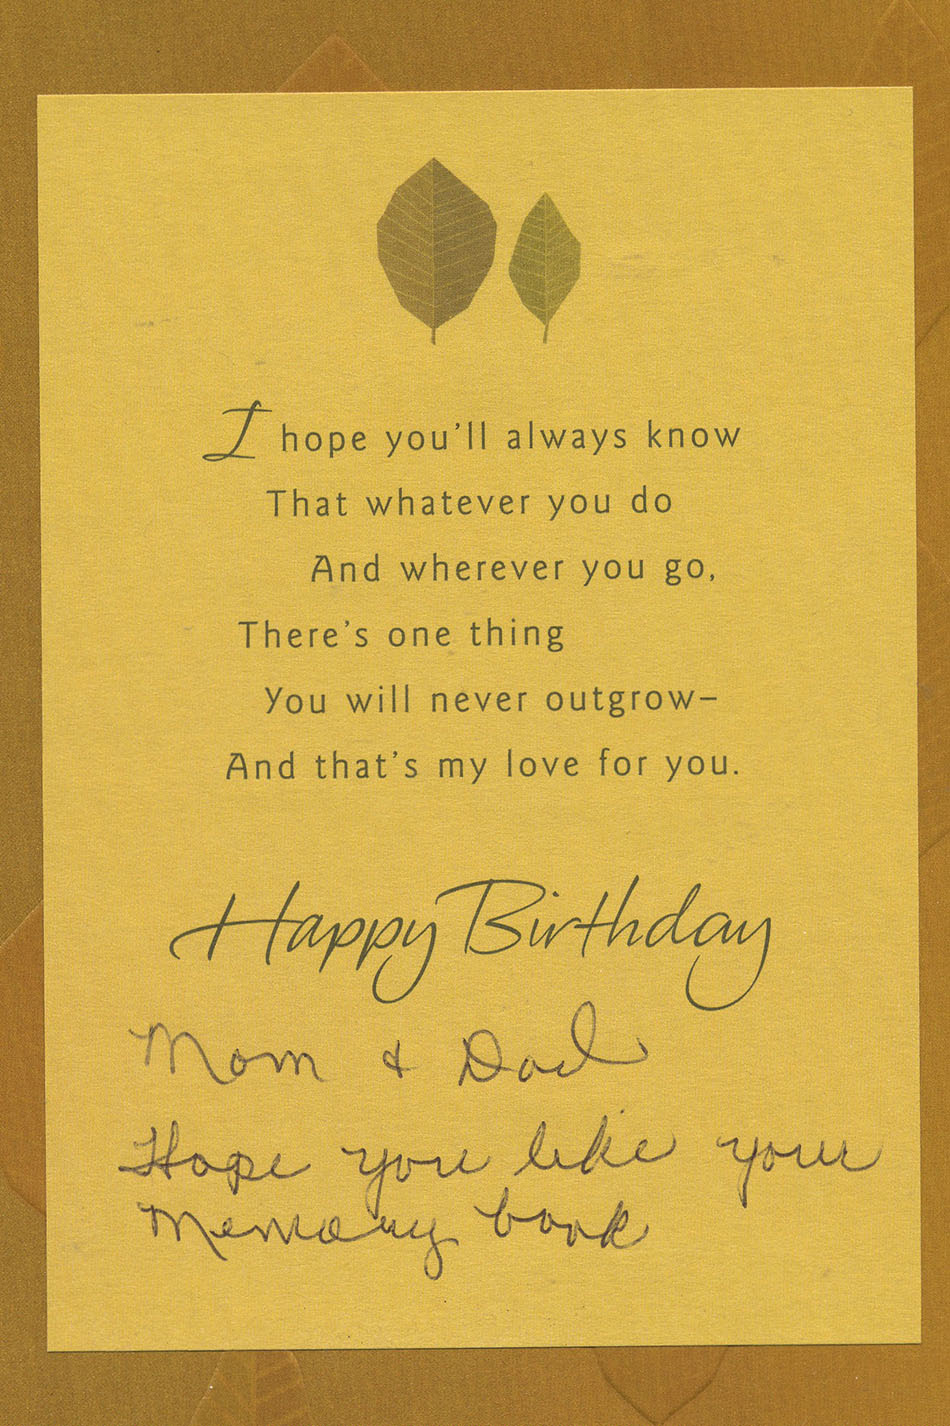 I hope you'll always know
That whatever you do
And wherever you go,
There's one thing
You will never outgrow–
And that's my love for you.
Happy Birthday
Mom & Dad
Hope you like your
Memory book